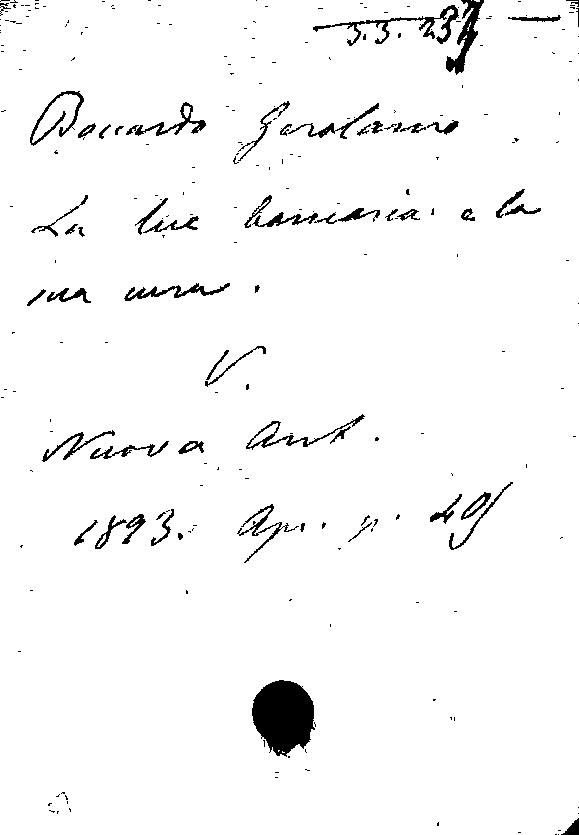 3.3.23
Boccardo Gerolamo
La lue bancaria e la
sua cura.
V.
Nuova Ant.
1893. Apr. p. 401